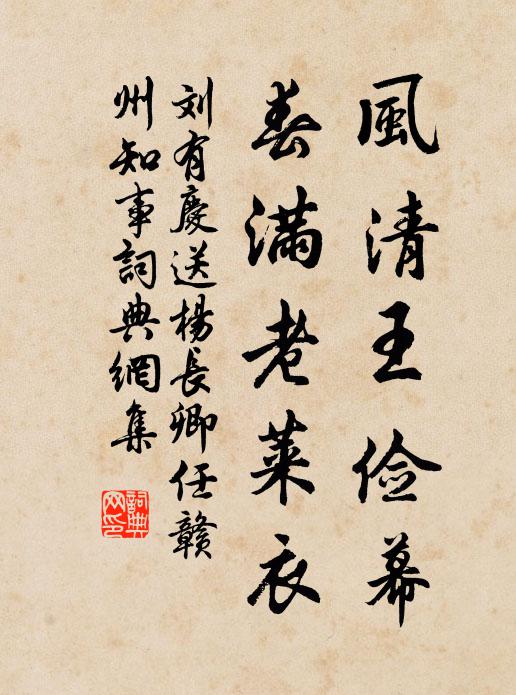 風清王儉幕
春滿老萊衣
刘有慶送楊長卿任贛
州知事詞典網集
詞典
网印